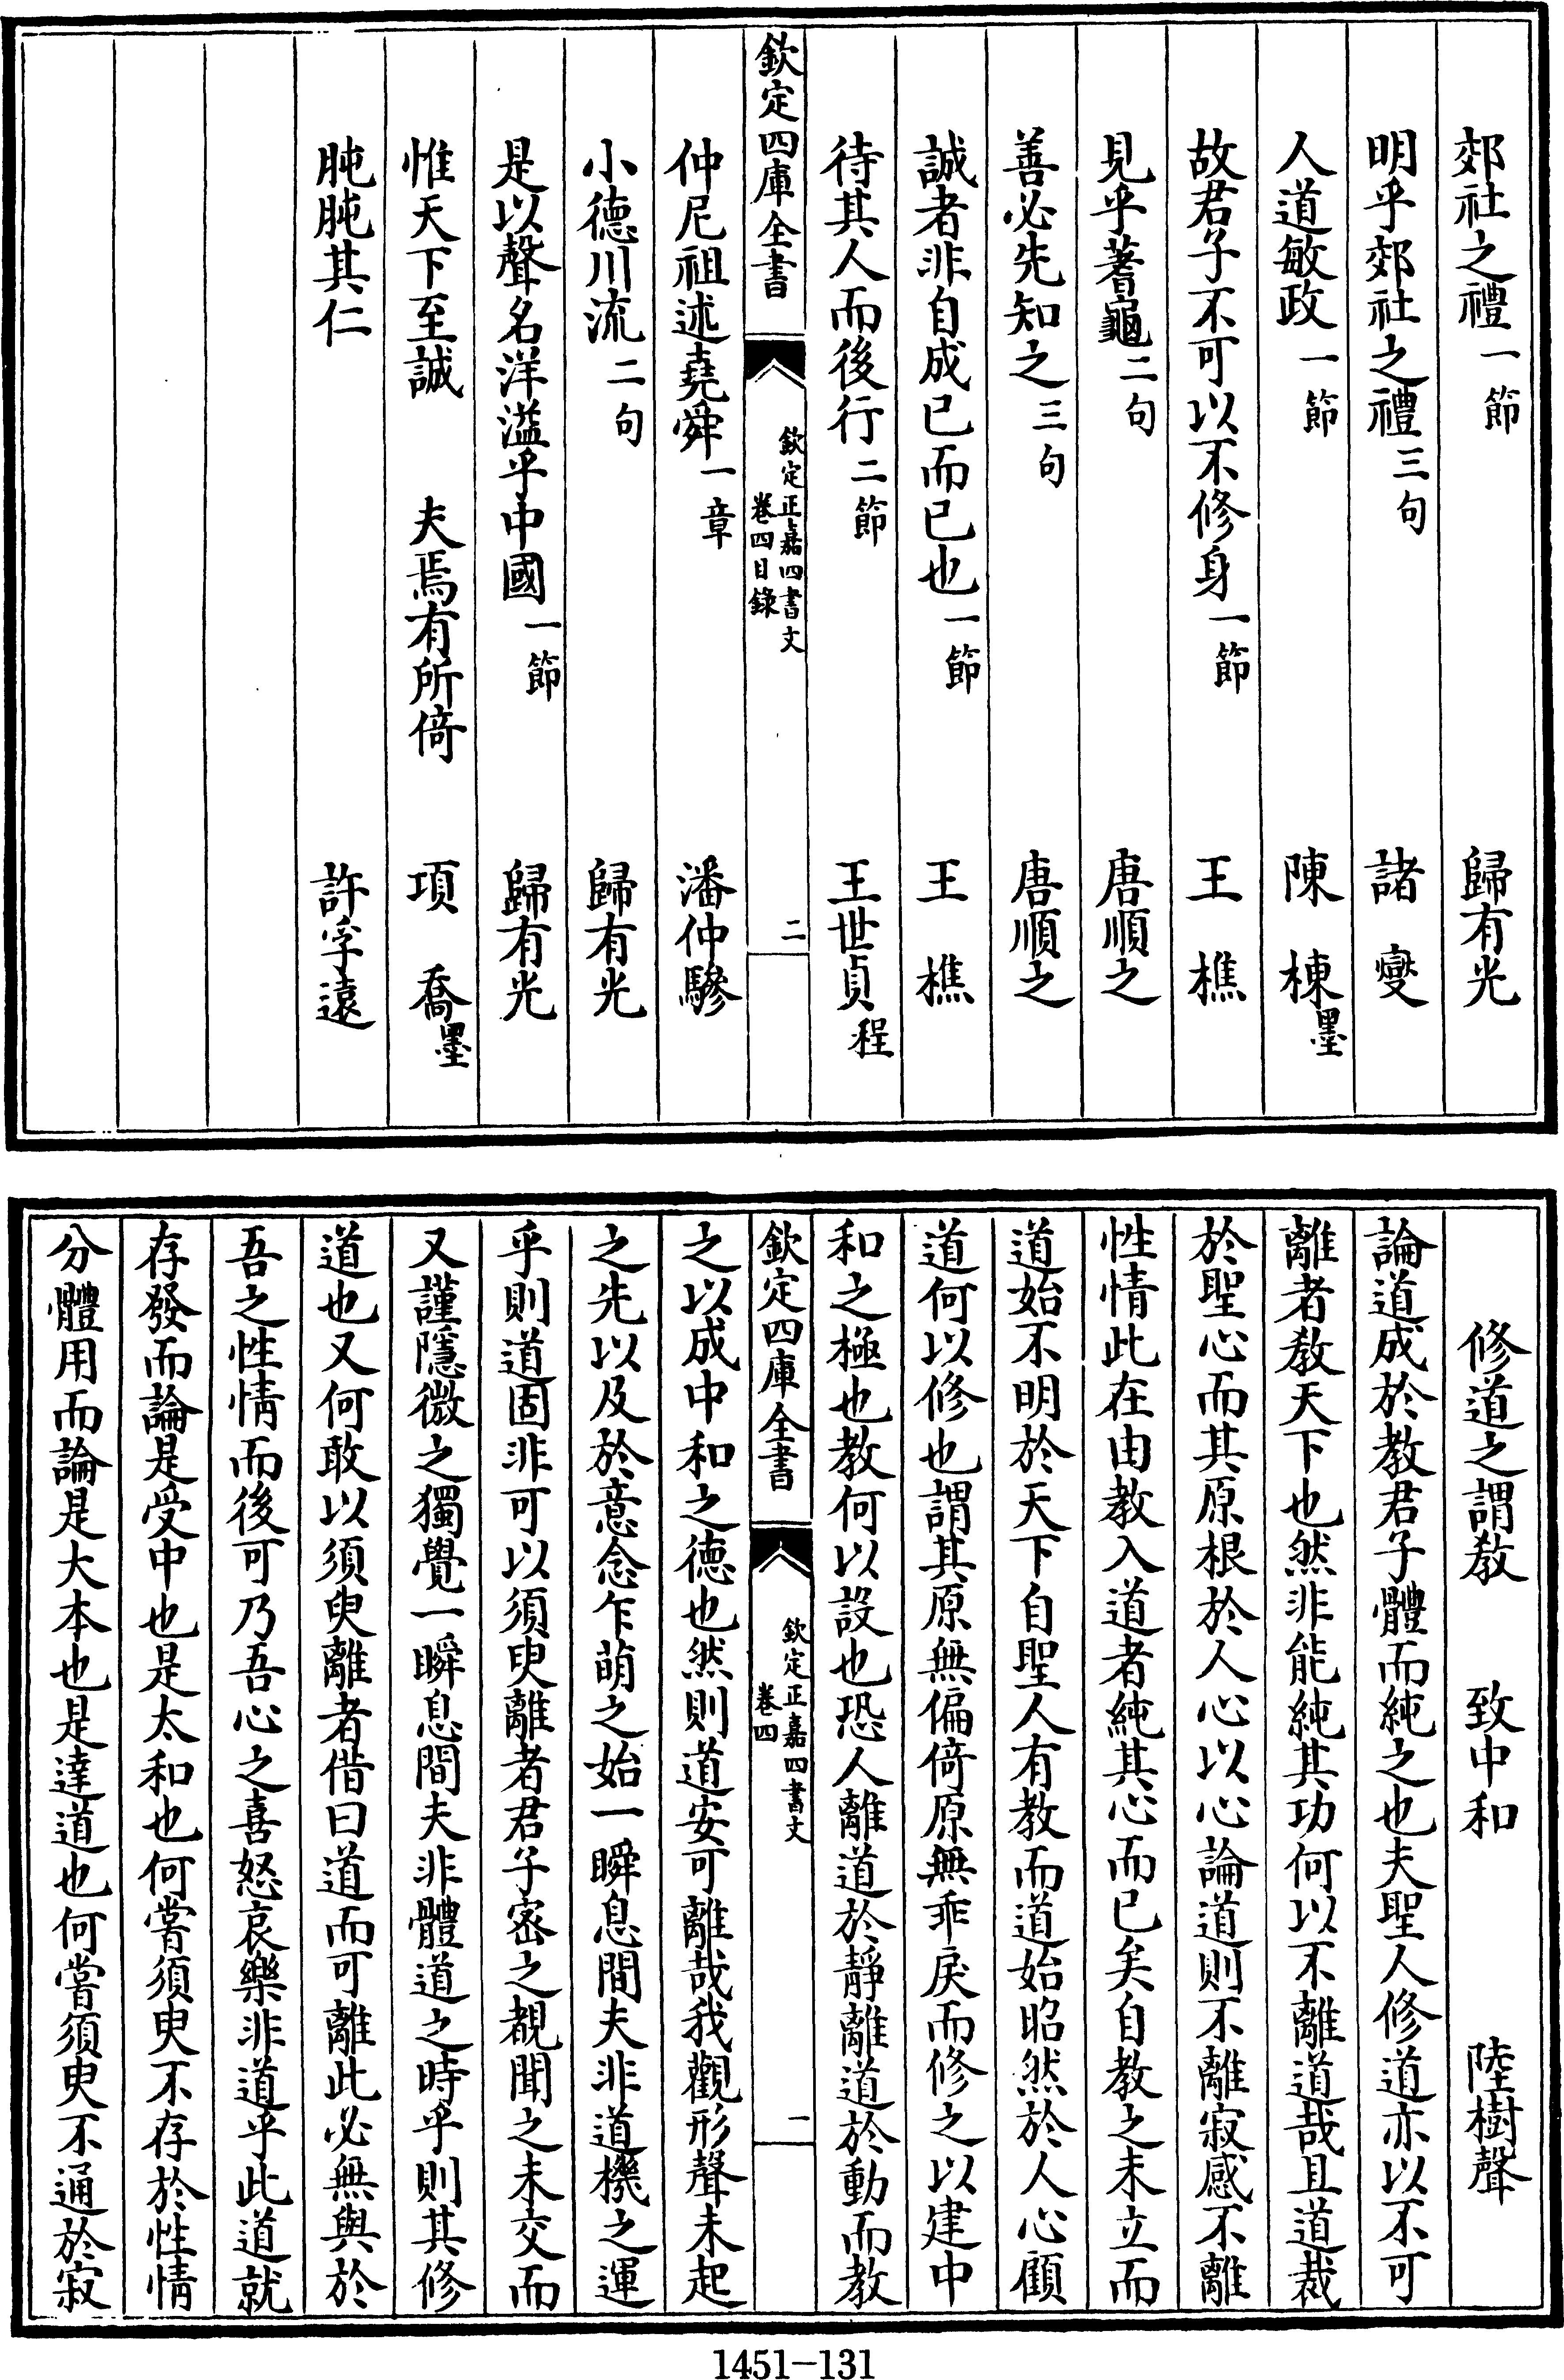 郊社之禮一節 歸有光
明乎郊社之禮三句 諸燮
人道敏政一節 陳棟墨
故君子不可以不修身一節 王樵
見乎蓍龜二句 唐順之
善必先知之三句 唐順之
誠者非自成已而已也一節 王樵
待其人而後行二節 王世貞程
欽定四庫全書 欽定正嘉四書文 卷四目錄 二
仲尼祖述堯舜一章 潘仲驂
小德川流二句 歸有光
是以聲名洋溢乎中國一節 歸有光
惟天下至誠 夫焉有所倚 項喬墨
肫肫其仁 許孚遠
修道之謂教 致中和 陸樹聲
論道成於教君子體而純之也夫聖人修道亦以不可
離者教天下也然非能純其功何以不離道哉且道裁
於聖心而其原根於人心以心論道則不離寂感不離
性情此在由教入道者純其心而已矣自教之未立而
道始不明於天下自聖人有教而道始昭然於人心顧
道何以修也謂其原無偏倚原無乖戾而修之以建中
和之極也教何以設也恐人離道於靜離道於動而教
欽定四庫全書 欽定正嘉四書文 卷四 一
之以成中和之德也然則道安可離哉我觀形聲未起
之先以及於意念乍萌之始一瞬息間夫非道機之運
乎則道固非可以須臾離者君子密之覩聞之未交而
又謹隱微之獨覺一瞬息間夫非體道之時乎則其修
道也又何敢以須臾離者借曰道而可離此必無與於
吾之性情而後可乃吾心之喜怒哀樂非道乎此道就
存發而論是受中也是太和也何嘗須臾不存於性情
分體用而論是大本也是達道也何嘗須臾不通於寂
1451-131